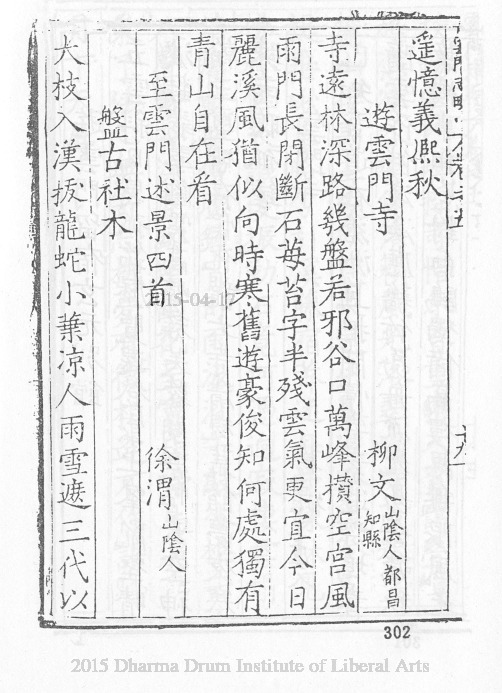 遥憶義熈秋
遊雲門寺
柳文
山陰人都昌
知縣
寺遠林深路幾盤若邪谷口萬峰攅空宫風
雨門長閉斷石苺苔字半殘雲氣更宜今日
麗溪風猶似向時寒舊遊豪俊知何處獨有
青山自在看
至雲門述景四首
徐渭
山陰人
盤古社木
大枝入漢抜龍蛇小葉凉人雨雪遮三代以
302
2015-04-17
2015 Dharma Drum Institute of Liberal Arts